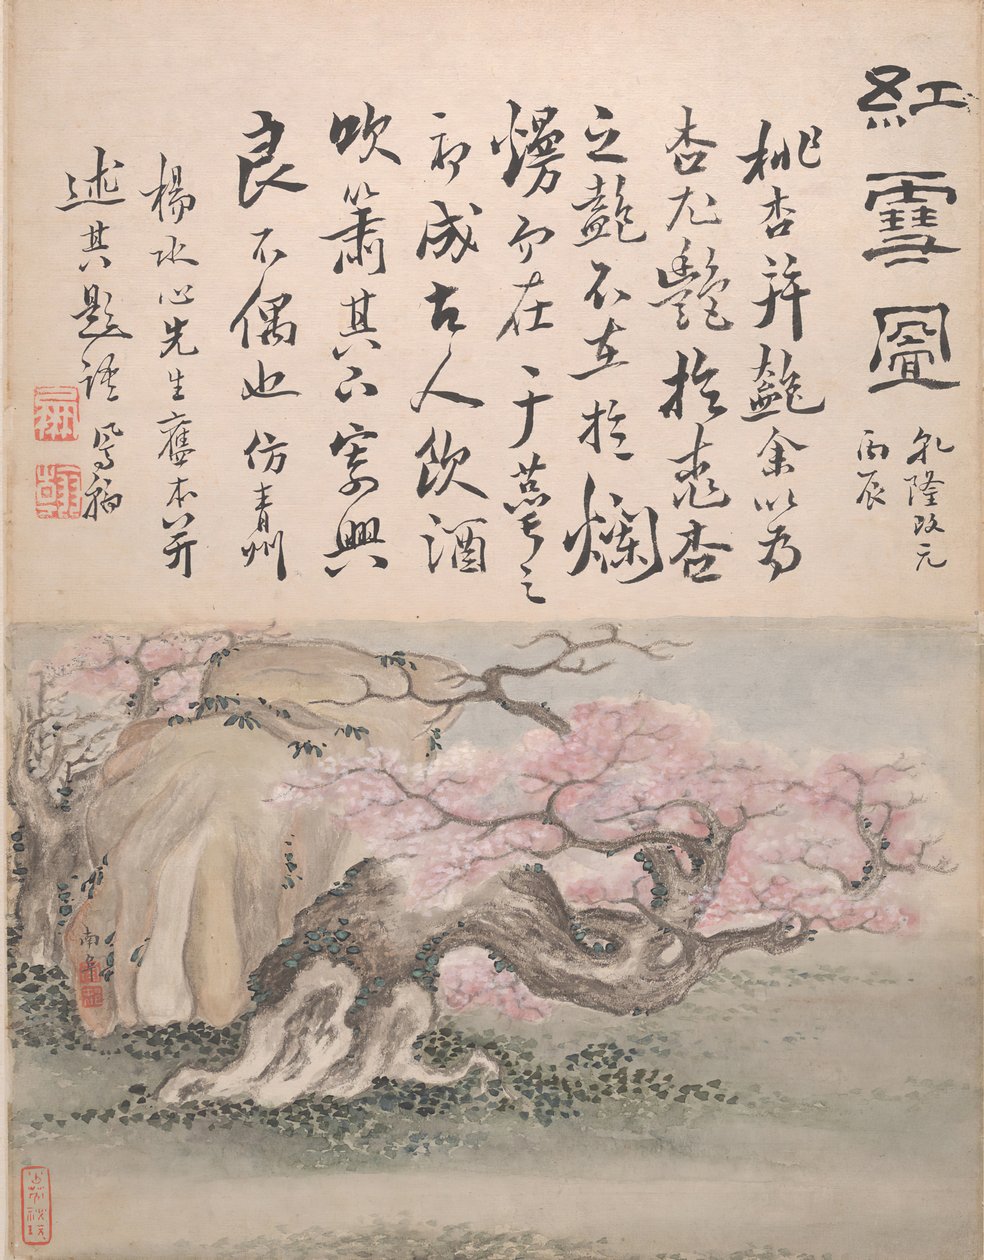 紅雪圖
乾隆改元
丙辰
桃杏并艷余以為
杏尤艷於桃杏
之艷不在於爛
熳而在于蕚之
初成古人飲酒
吹簫其下寄興
良不偶也仿青州
楊水心先生舊本并
述其題語鳳翰
南阜